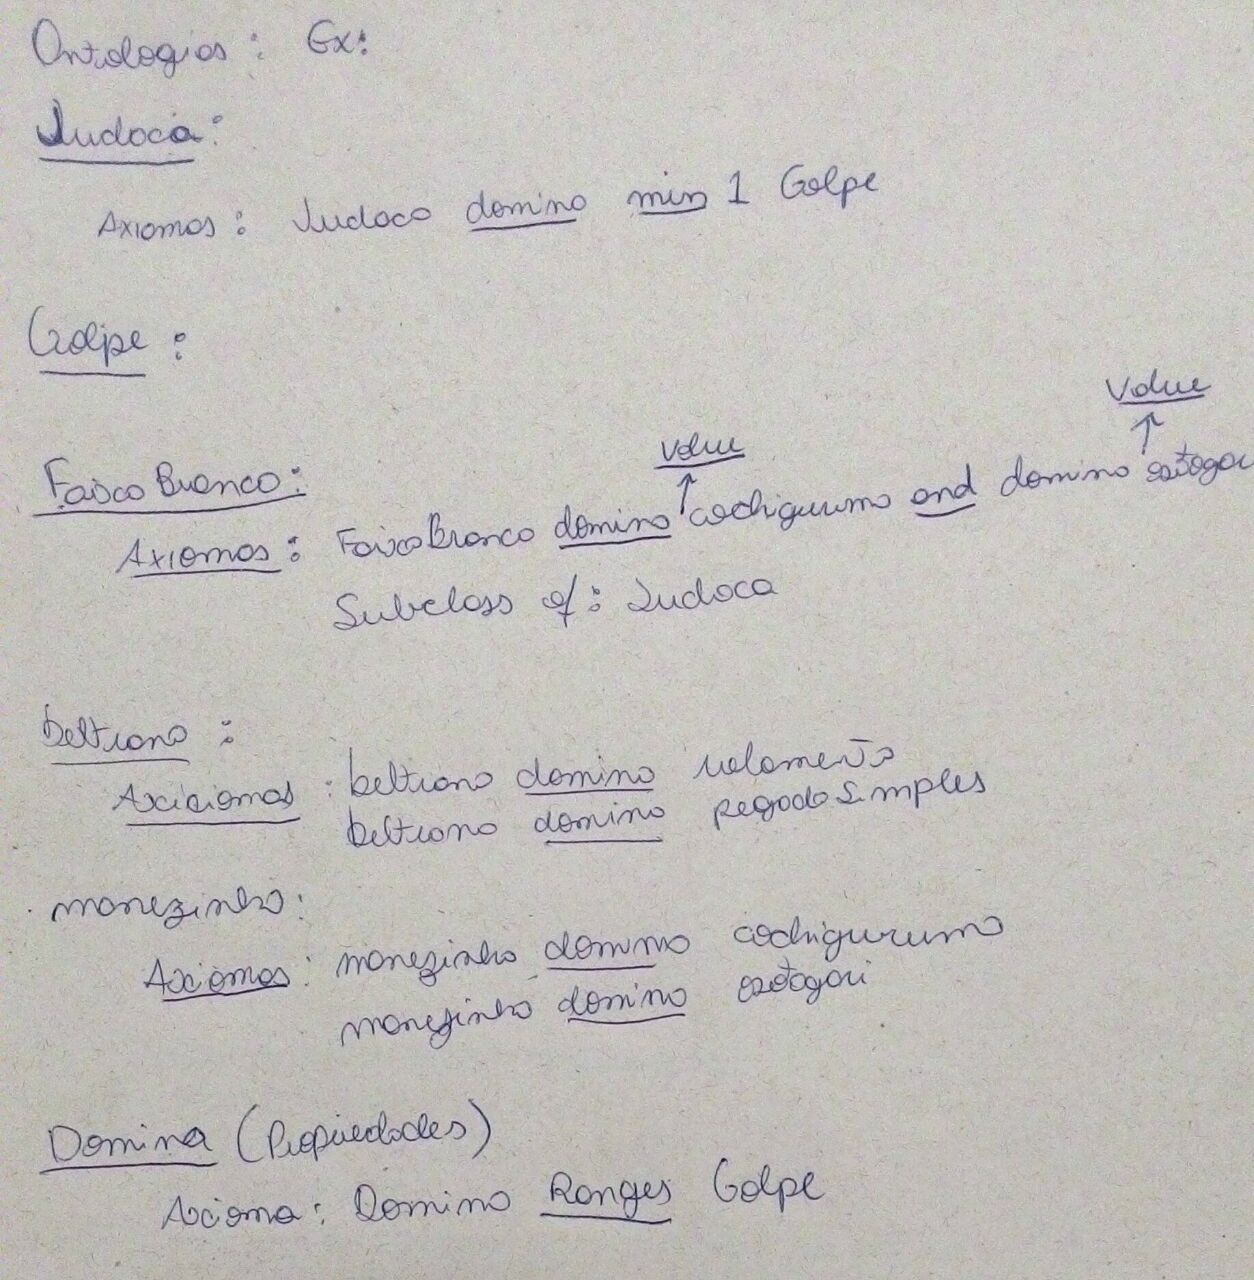 Ontologias: Ex:
Judoca:
Axiomas: Judoca domina min 1 Golpe
Golpe:
value
value
FaixaBranca:
Axiomas: FaixaBranca domina ↑ cachigurumo and domina ↑ ozotogari
Subclass of: Judoca
beltrano:
Axiciomas: beltrano domina rolamento
beltrano domina pegadaSimples
manezinho:
Axiomas: manezinho domina cachigurumo
manezinho domina ozotogari
Domina (Propriedades)
Axioma: Domina Ranges Golpe